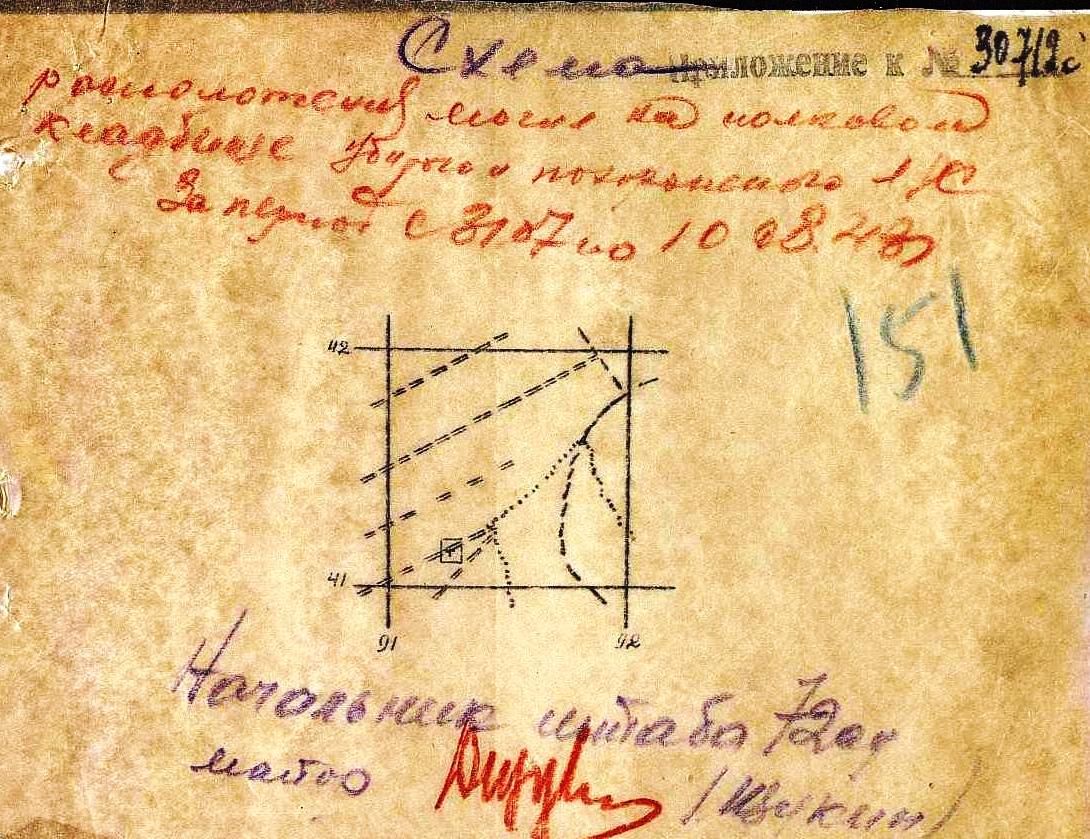 Схема
Приложение к № 30712с
расположения могил на полковом
кладбище убитого и похороненного л/с
За период с 31 07 по 10 08 43
151
42
41
91 92
Начальник штаба 72
майор /Щукин/